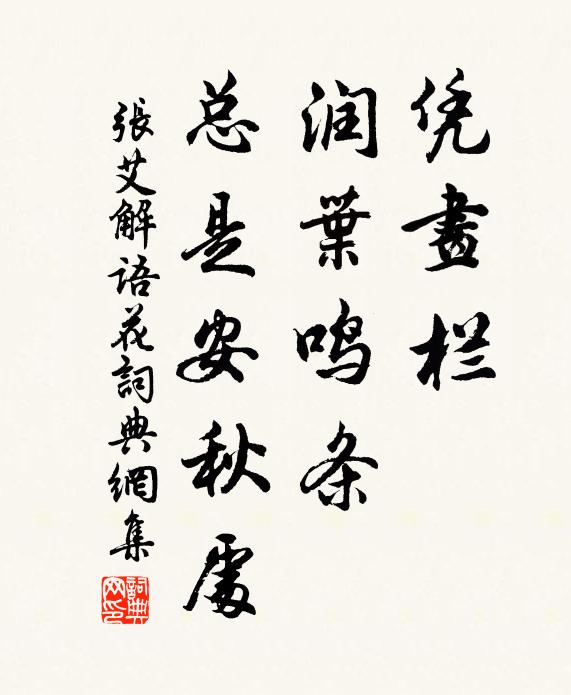 凭畫栏
润葉鸣条
总是安秋處
張艾解语花詞典網集
詞典网印